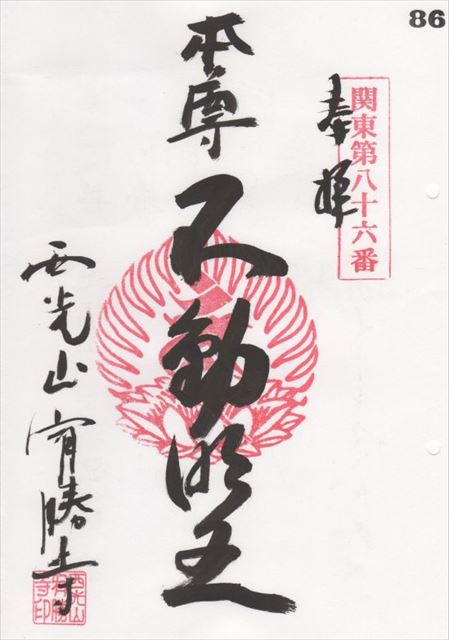 86
関東第八十六番
奉拝
本尊 不動明王
西光山 宥勝寺
西光山
宥勝
寺印